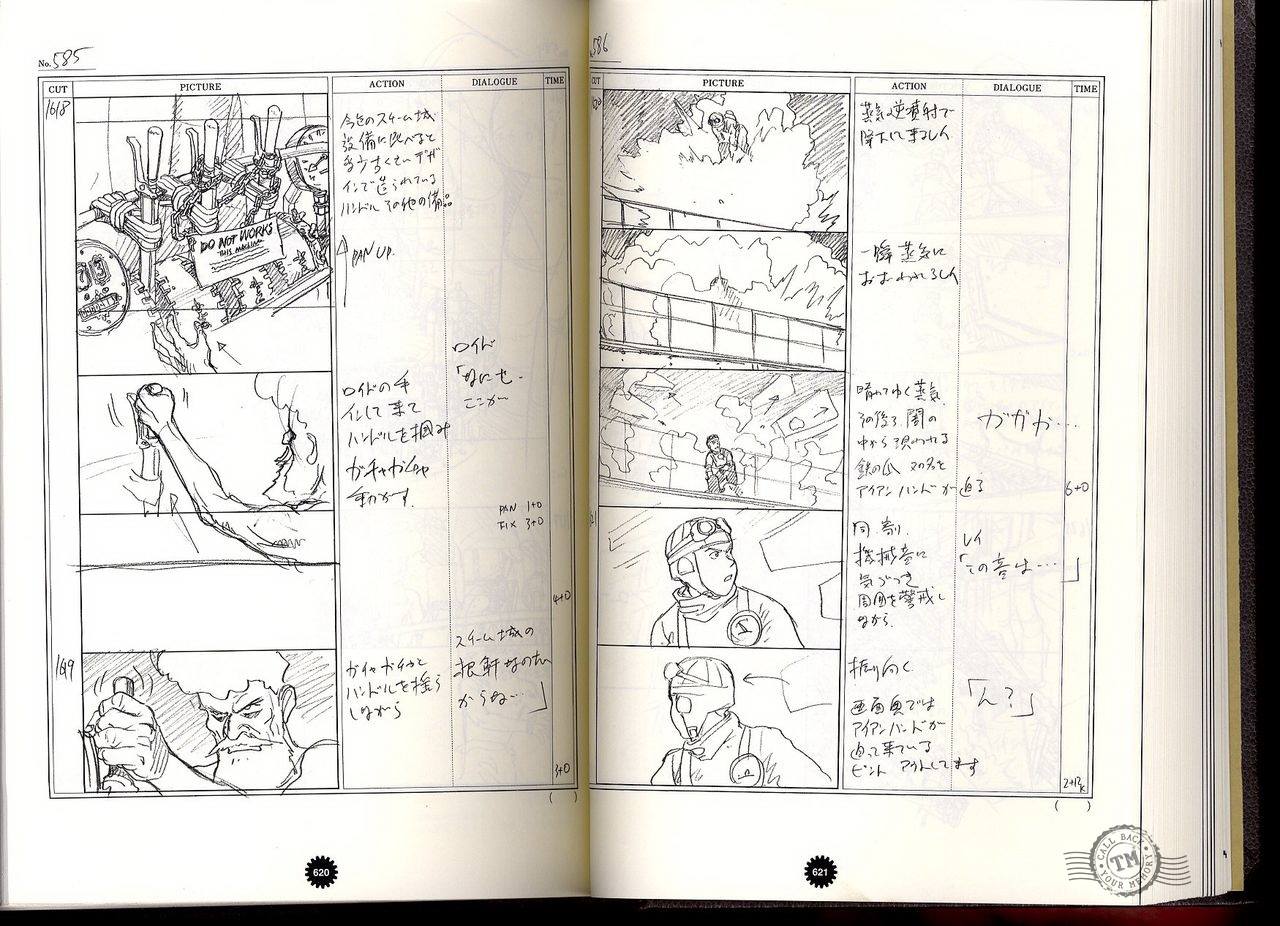 No. 585
CUT
PICTURE
ACTION
DIALOGUE
TIME
1618
DO NOT WORKS
THIS MACHINE
今迄のスチーム城
設備に比べると
多少古くさいデザ
インで造られている
ハンドルその他の備品
PAN UP.
ロイド
「なにせ…
ここが
ロイドの手
インして来て
ハンドルを掴み
ガチャガチャ
動かす。
PAN 1+0
FIX 3+0
4+0
1619
ガチャガチャと
ハンドルを
しながら
スチーム城の
根幹なのだ
からな…」
3+0
( )
620
586
CUT
PICTURE
ACTION
DIALOGUE
TIME
蒸気逆噴射で
降下して来るレイ
一瞬 蒸気に
おおわれるレイ
晴れてゆく蒸気
その後ろ 闇の
中から現われる
鉄の爪 又の名を
アイアンハンドが迫る
ガガガ…
6+0
同刻
機械音に
気づき
周囲を警戒し
ながら
レイ
「この音は…」
振り向く
画面奥では
アイアンハンドが
迫って来ている
ピント アウトしてます
「ん?」
2+12K
( )
621
CALL BACK
TM
YOUR MEMORY